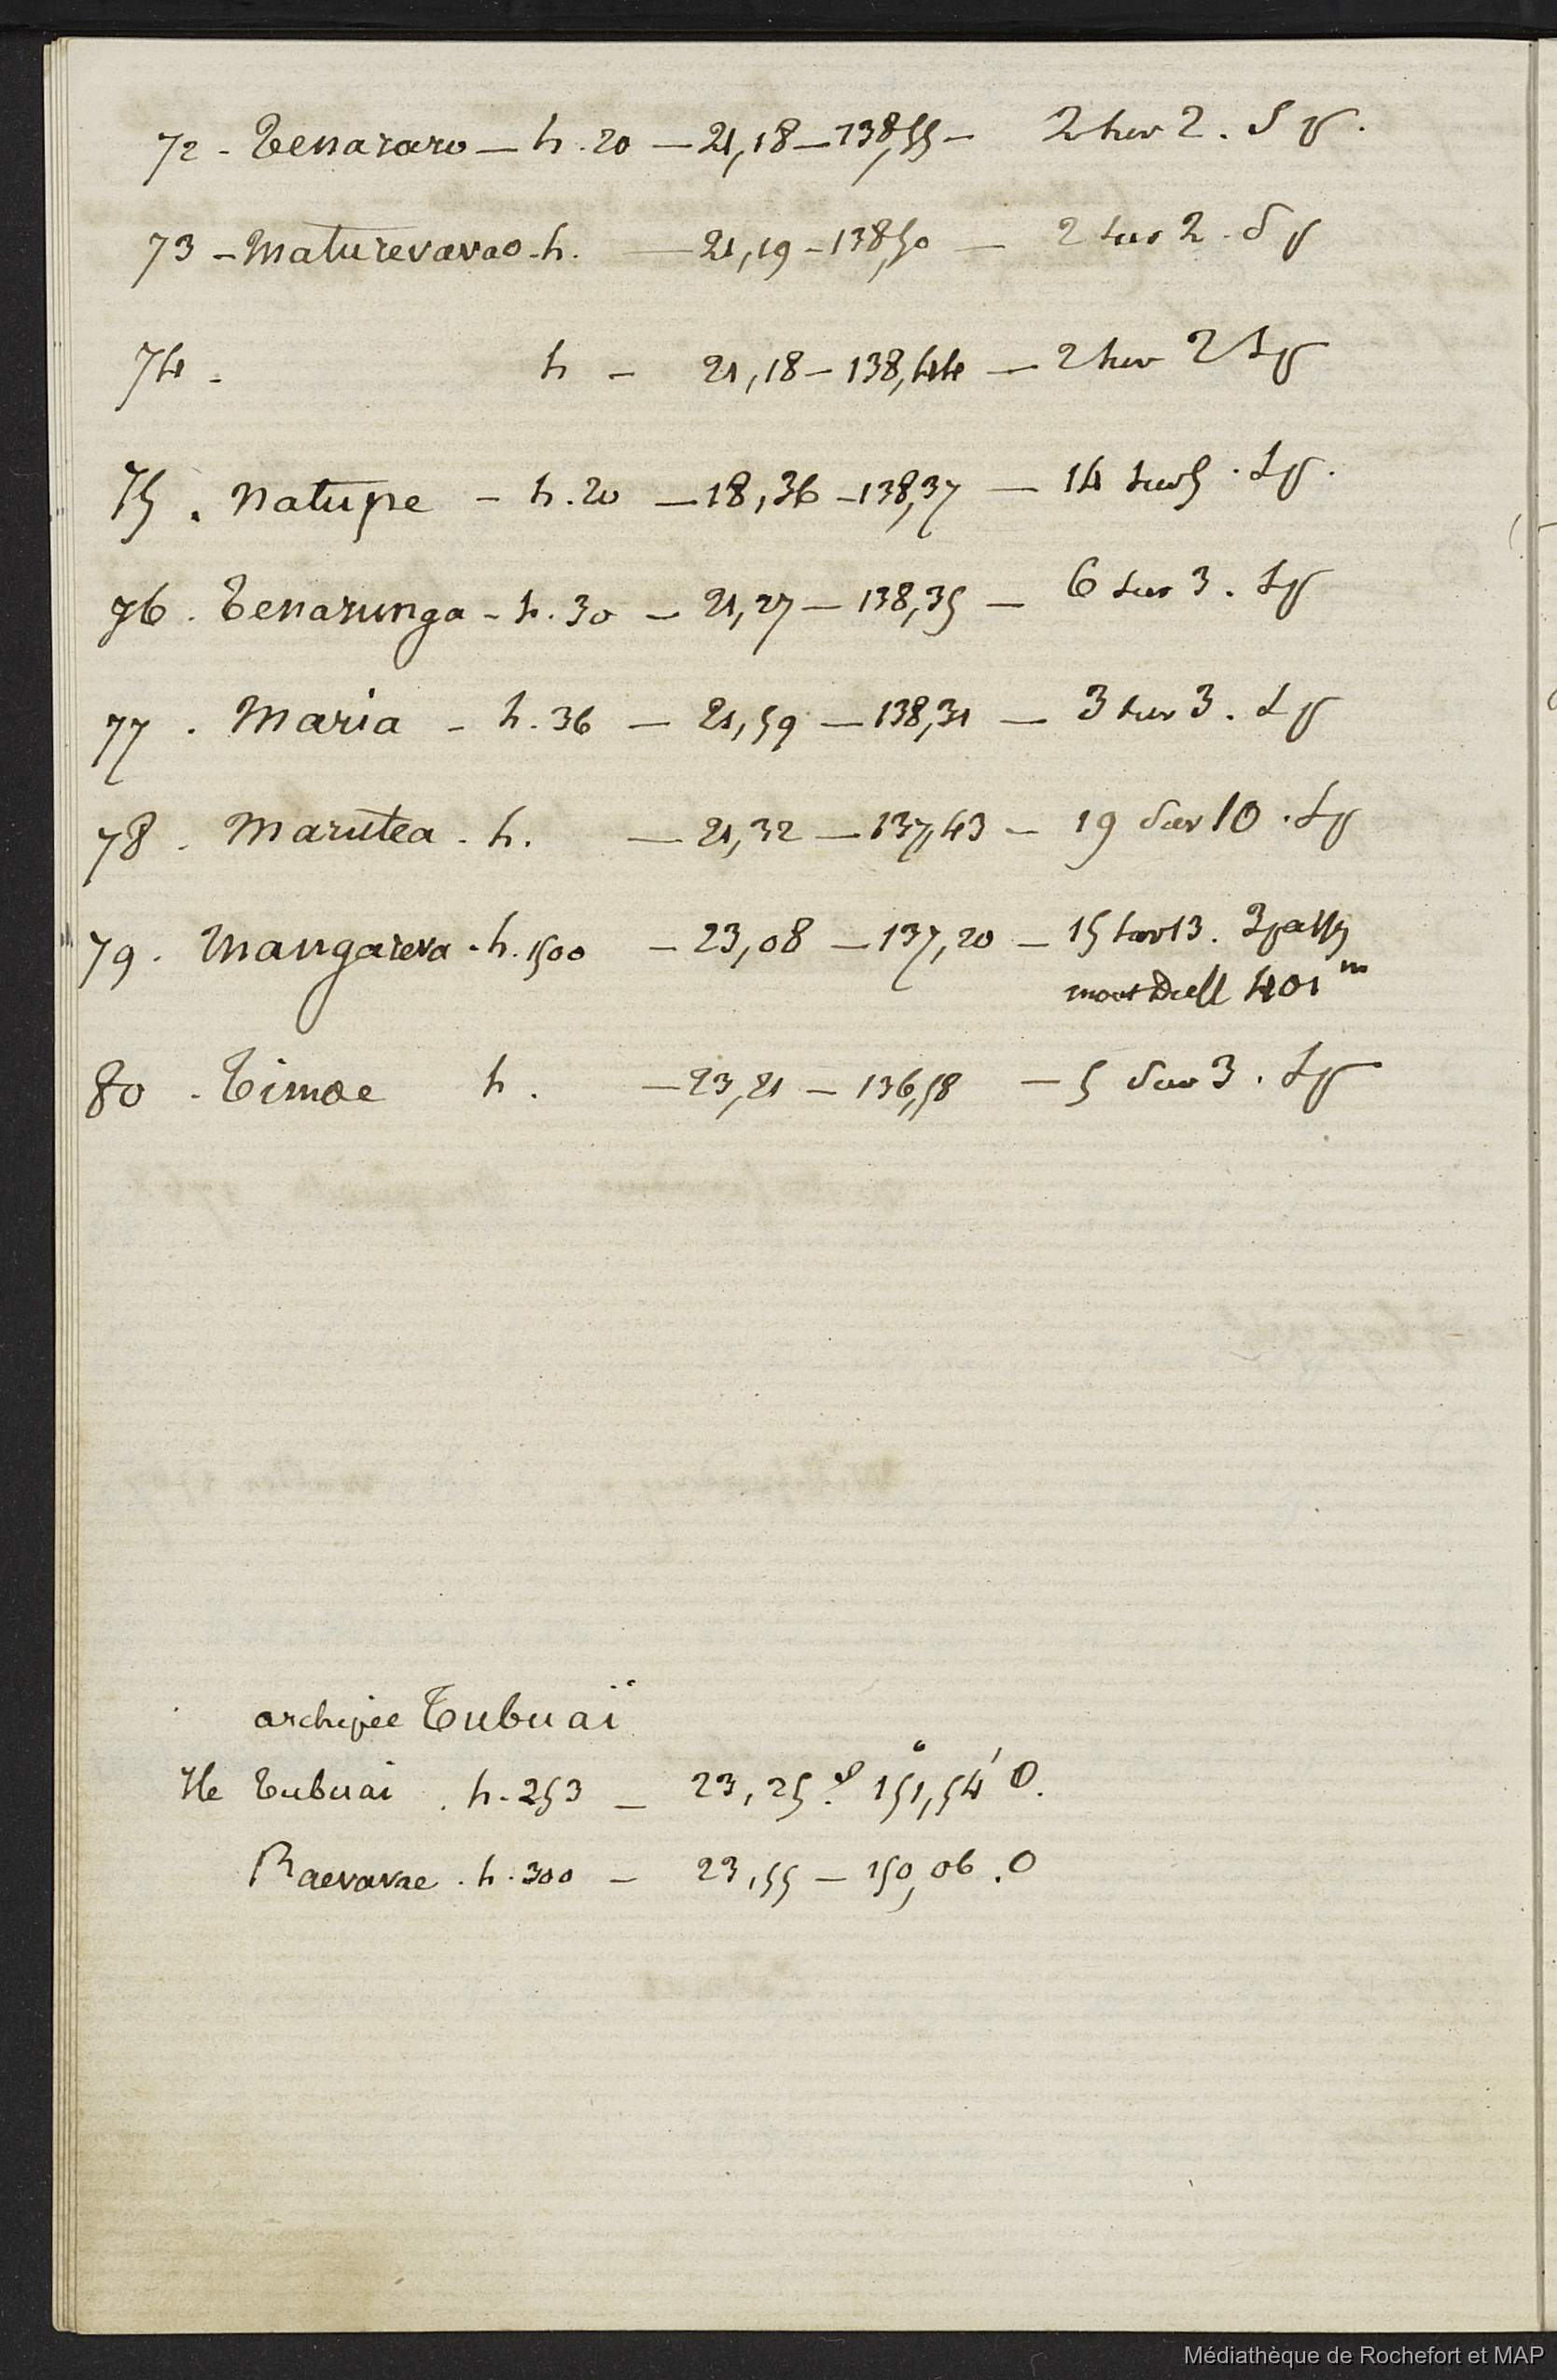 72 - Tenararo — h. 20 — 21,18 — 138,55 — 2 sur 2. S p.
73 - Maturevavao - h. — 21,19 - 138,50 — 2 sur 2. S p
74 - h - 21,18 - 138,44 — 2 sur 2 S p
75. Natupe - h. 20 — 18,36 - 138,37 — 14 sur 5. S p.
76. Tenarunga - h. 30 — 21,27 — 138,35 — 6 sur 3. S p
77. Maria - h. 36 — 21,59 — 138,31 — 3 sur 3. S p
78. Marutea - h. — 21,32 — 137,43 — 19 sur 10. S p
79. Mangareva - h. 1500 — 23,08 — 137,20 — 15 sur 13. 3 pass
mont Duff 401 m
80 - Timoe h. — 23,21 — 136,58 — 5 sur 3. S p
archipel Tubuaï
Ile Tubuai. h. 253 — 23,25. S 151°,54' O.
Raevavae. h. 300 — 23,55 — 150,06. O
Médiathèque de Rochefort et MAP